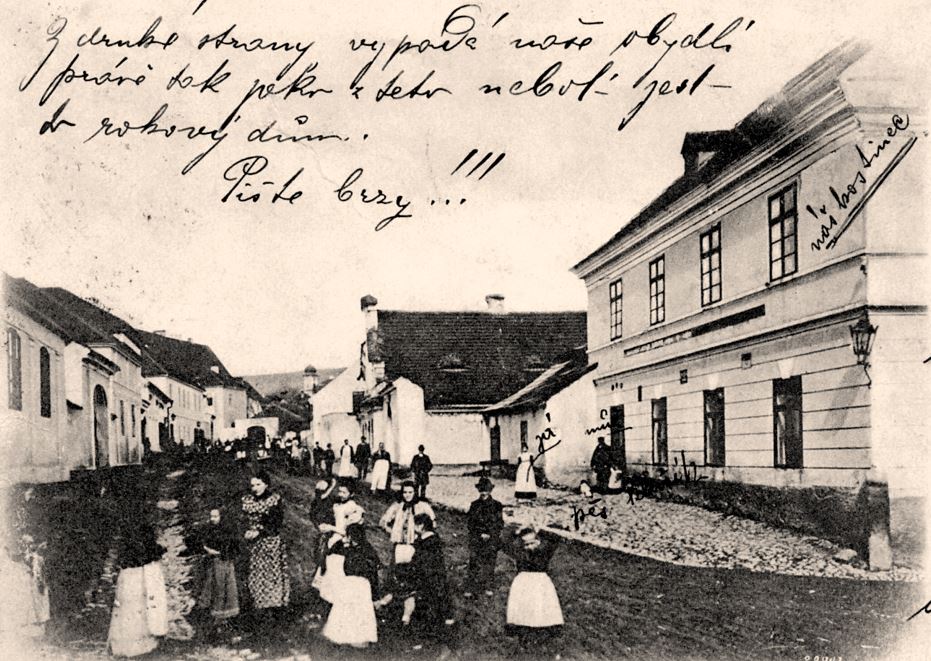 Z druhé strany vypadá naše obydlí
právě tak jako z této neboť jest
to rokový dům.
Pište brzy...!!!
náš hostinec
já
můj
pes